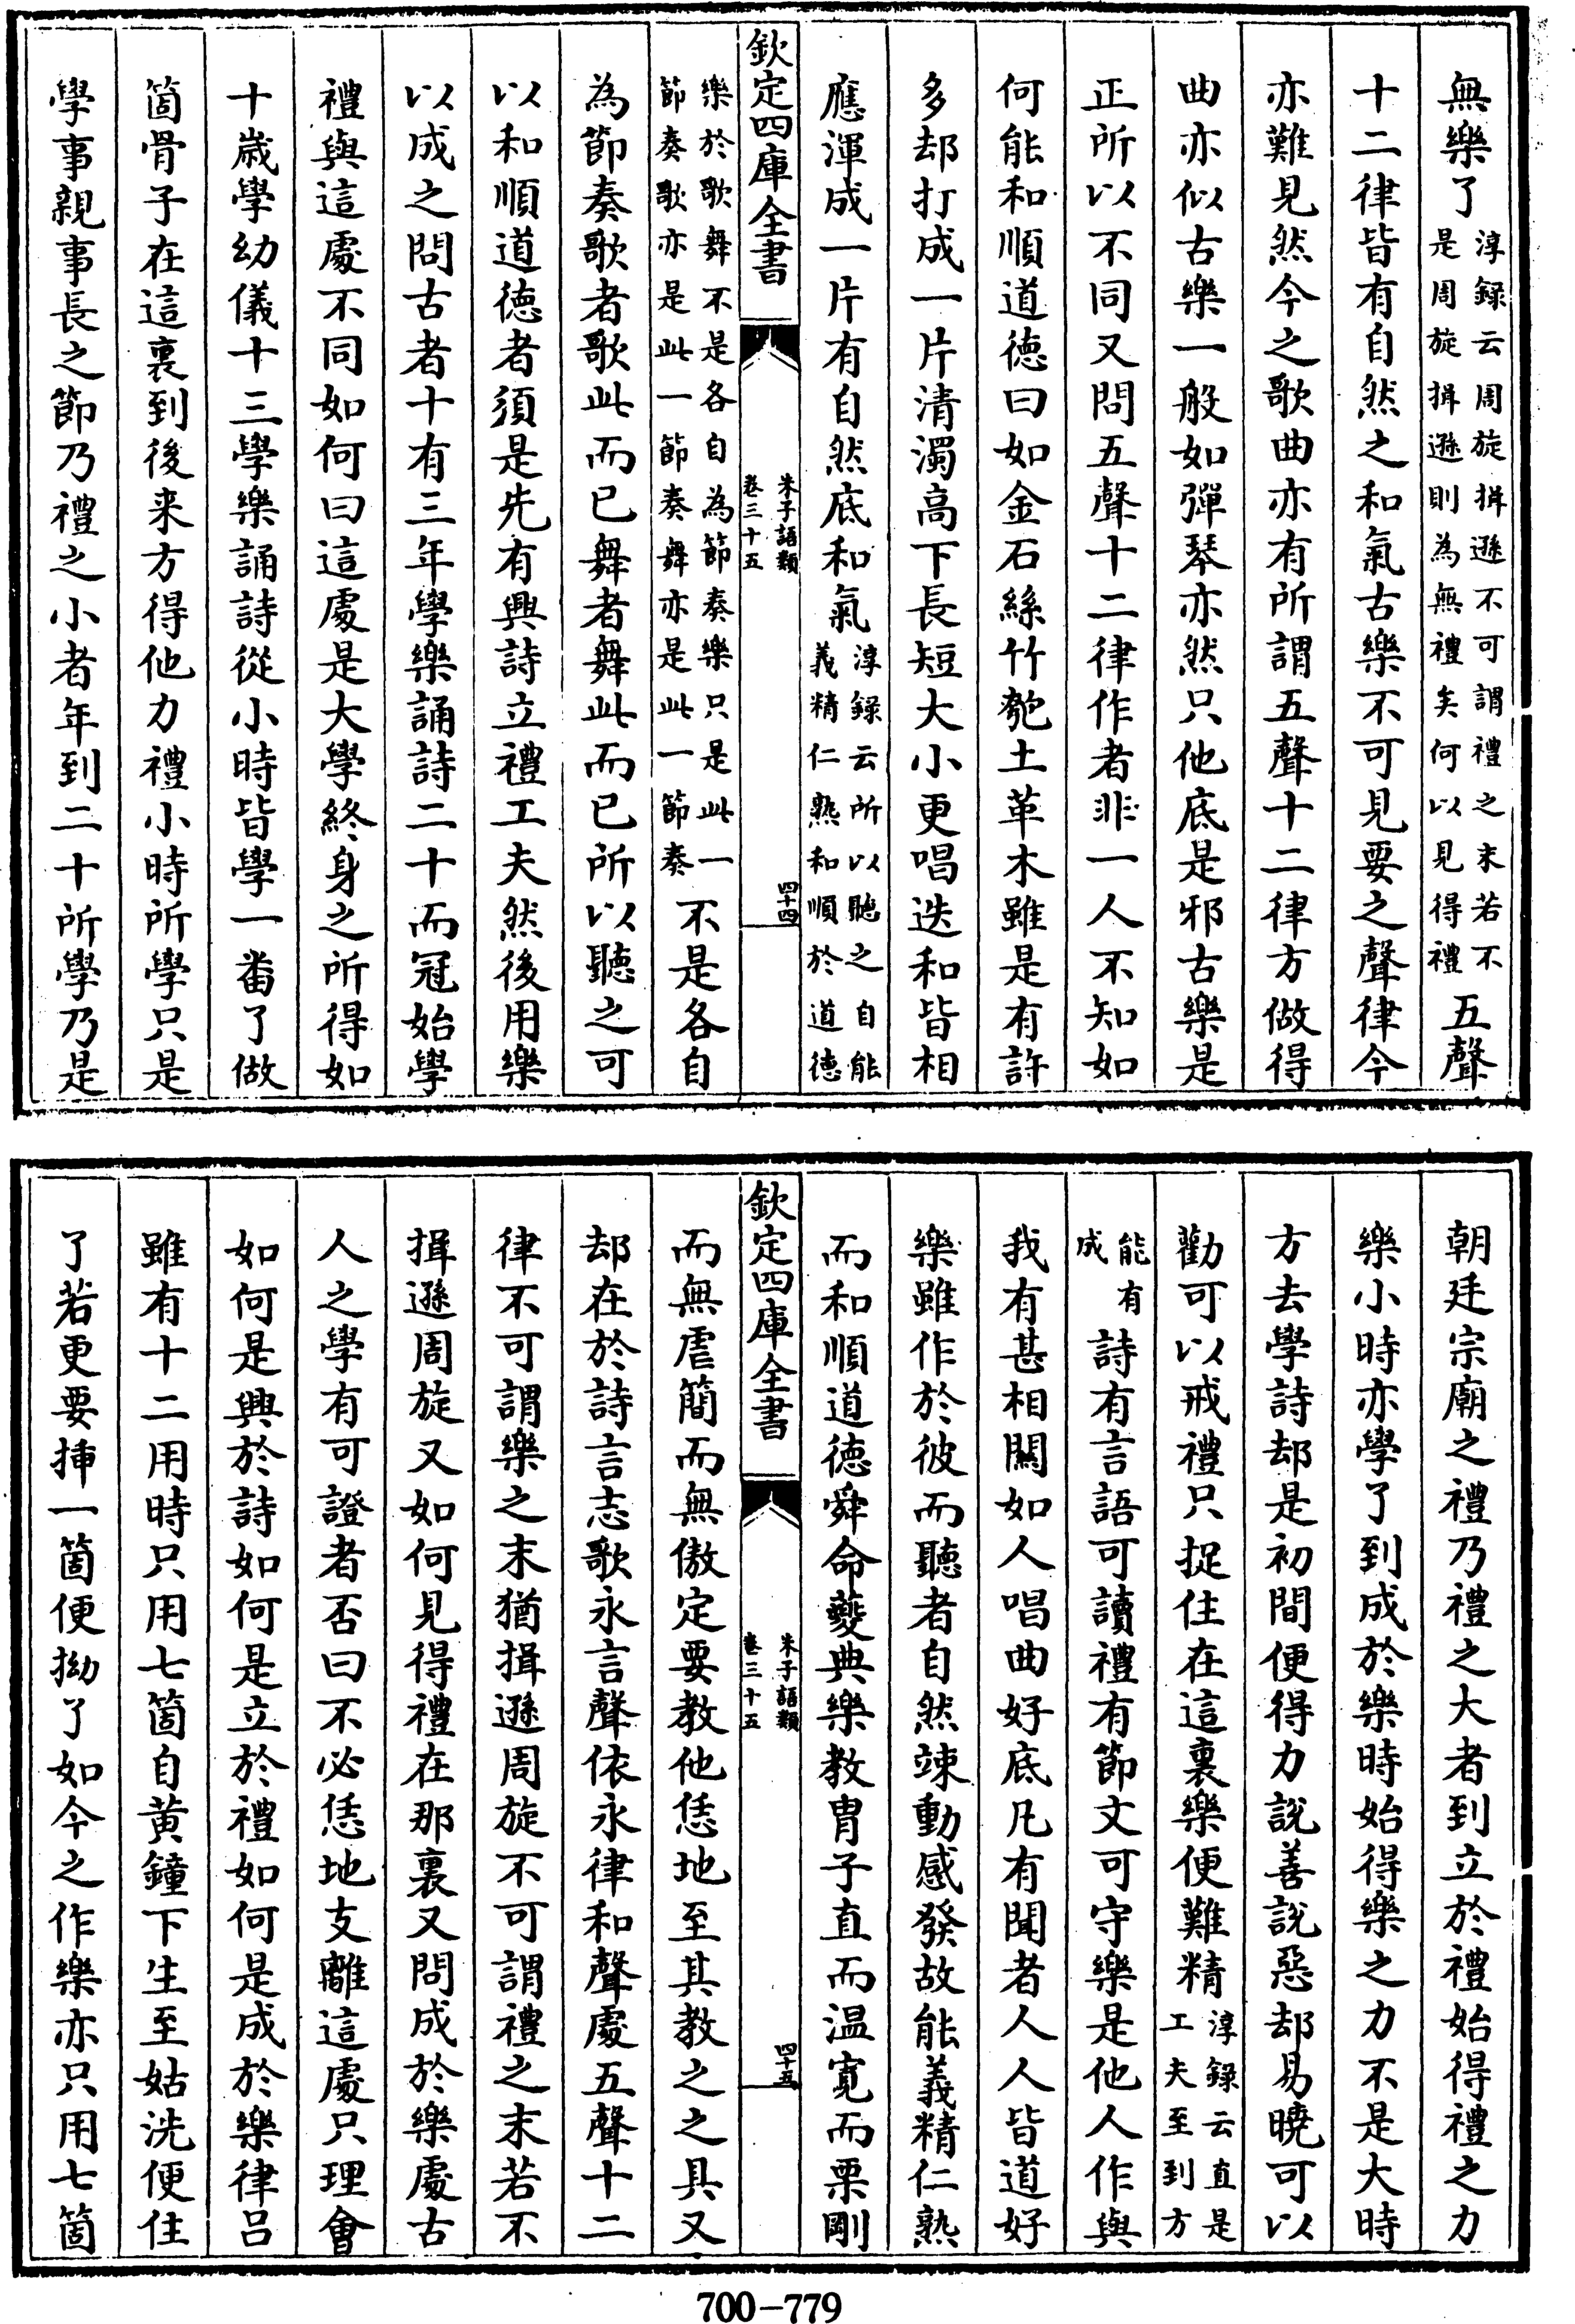 無樂了淳録云周旋揖遜不可謂禮之末若不是周旋揖遜則為無禮矣何以見得禮五聲
十二律皆有自然之和氣古樂不可見要之聲律今
亦難見然今之歌曲亦有所謂五聲十二律方做得
曲亦似古樂一般如彈琴亦然只他底是邪古樂是
正所以不同又問五聲十二律作者非一人不知如
何能和順道德曰如金石絲竹匏土革木雖是有許
多却打成一片清濁高下長短大小更唱迭和皆相
應渾成一片有自然底和氣淳録云所以聽之自能義精仁熟和順於道德
欽定四庫全書
朱子語類
卷三十五
四十四
樂於歌舞不是各自為節奏樂只是此一節奏歌亦是此一節奏舞亦是此一節奏不是各自
為節奏歌者歌此而已舞者舞此而已所以聽之可
以和順道德者須是先有興詩立禮工夫然後用樂
以成之問古者十有三年學樂誦詩二十而冠始學
禮與這處不同如何曰這處是大學終身之所得如
十歳學幼儀十三學樂誦詩從小時皆學一番了做
箇骨子在這裏到後来方得他力禮小時所學只是
學事親事長之節乃禮之小者年到二十所學乃是
朝廷宗廟之禮乃禮之大者到立於禮始得禮之力
樂小時亦學了到成於樂時始得樂之力不是大時
方去學詩却是初間便得力說善說惡却易曉可以
勸可以戒禮只捉住在這裏樂便難精淳録云直是工夫至到方
能有成詩有言語可讀禮有節文可守樂是他人作與
我有甚相闗如人唱曲好底凡有聞者人人皆道好
樂雖作於彼而聽者自然竦動感發故能義精仁熟
而和順道德舜命夔典樂教胄子直而温寛而栗剛
欽定四庫全書
朱子語類
卷三十五
四十五
而無虐簡而無傲定要教他恁地至其教之之具又
却在於詩言志歌永言聲依永律和聲處五聲十二
律不可謂樂之末猶揖遜周旋不可謂禮之末若不
揖遜周旋又如何見得禮在那裏又問成於樂處古
人之學有可證者否曰不必恁地支離這處只理會
如何是興於詩如何是立於禮如何是成於樂律呂
雖有十二用時只用七箇自黄鐘下生至姑洗便住
了若更要插一箇便拗了如今之作樂亦只用七箇
700-779